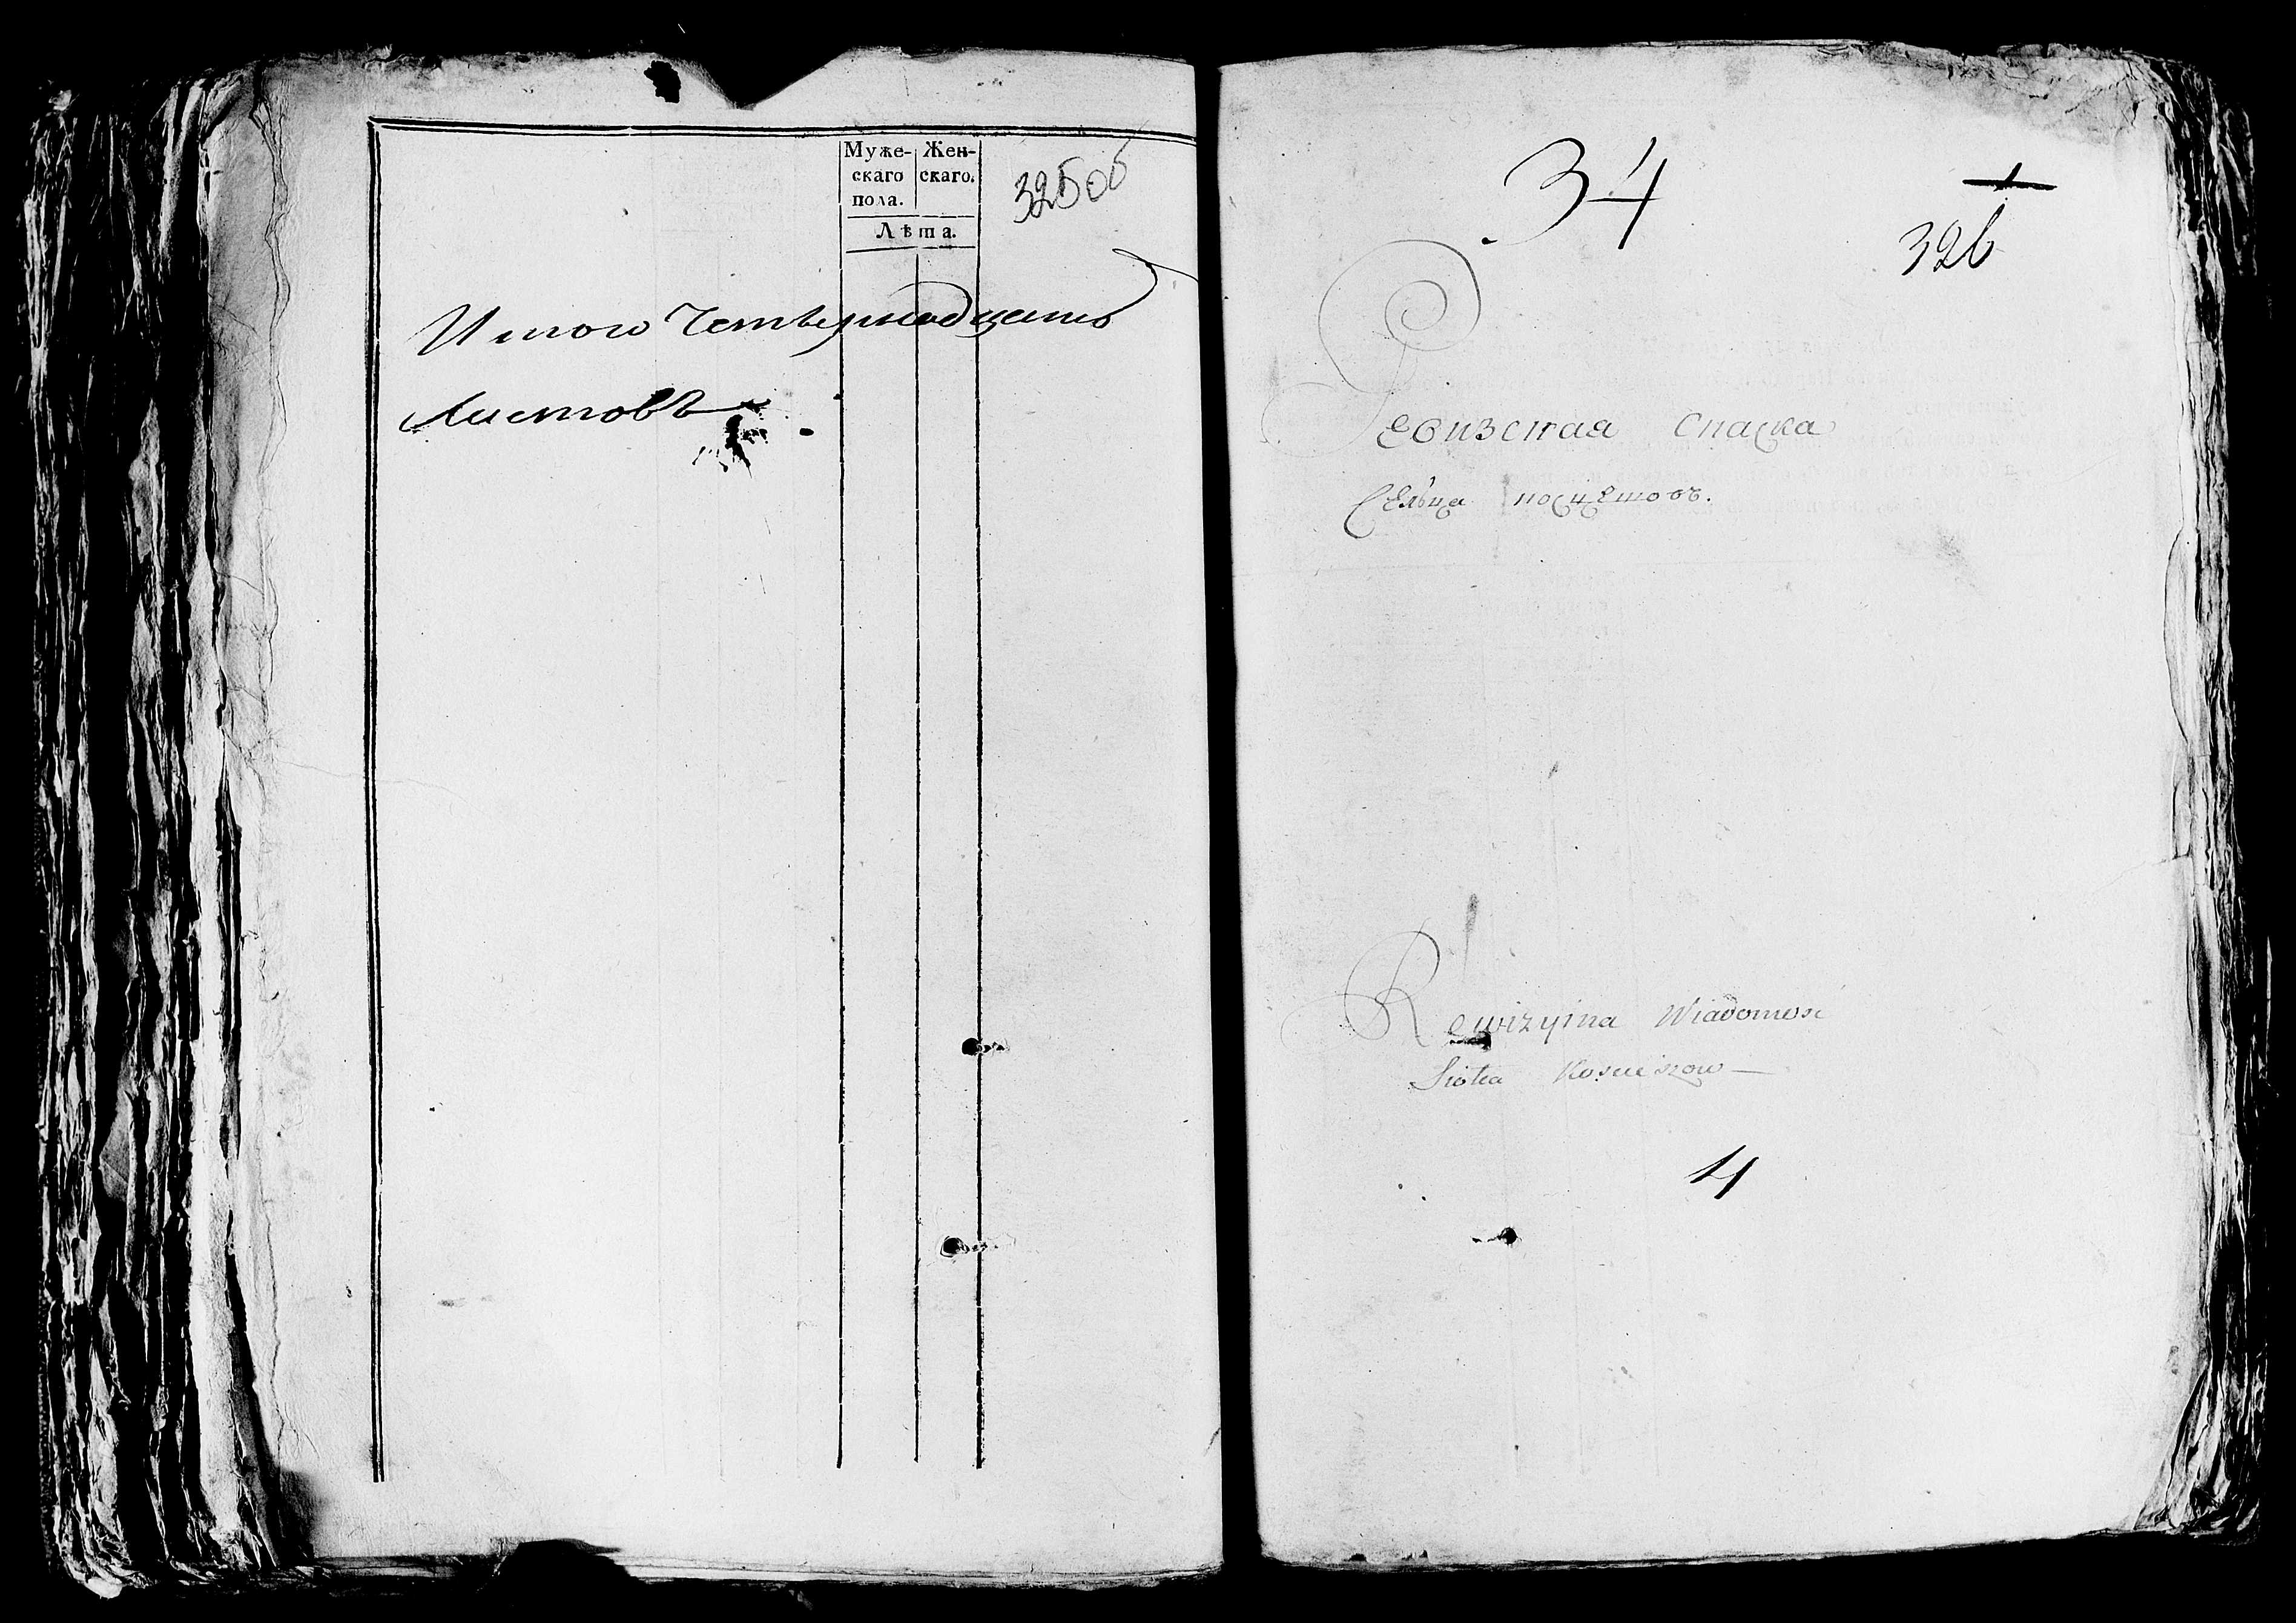 Муже-
скаго
пола.
Жен-
скаго.
Лѣта.
325об
Итого Четырнадцать
Листовъ
34
326
Ревизская сказка
Сельца
Rewizyina Wiadomosc
Siołca
4